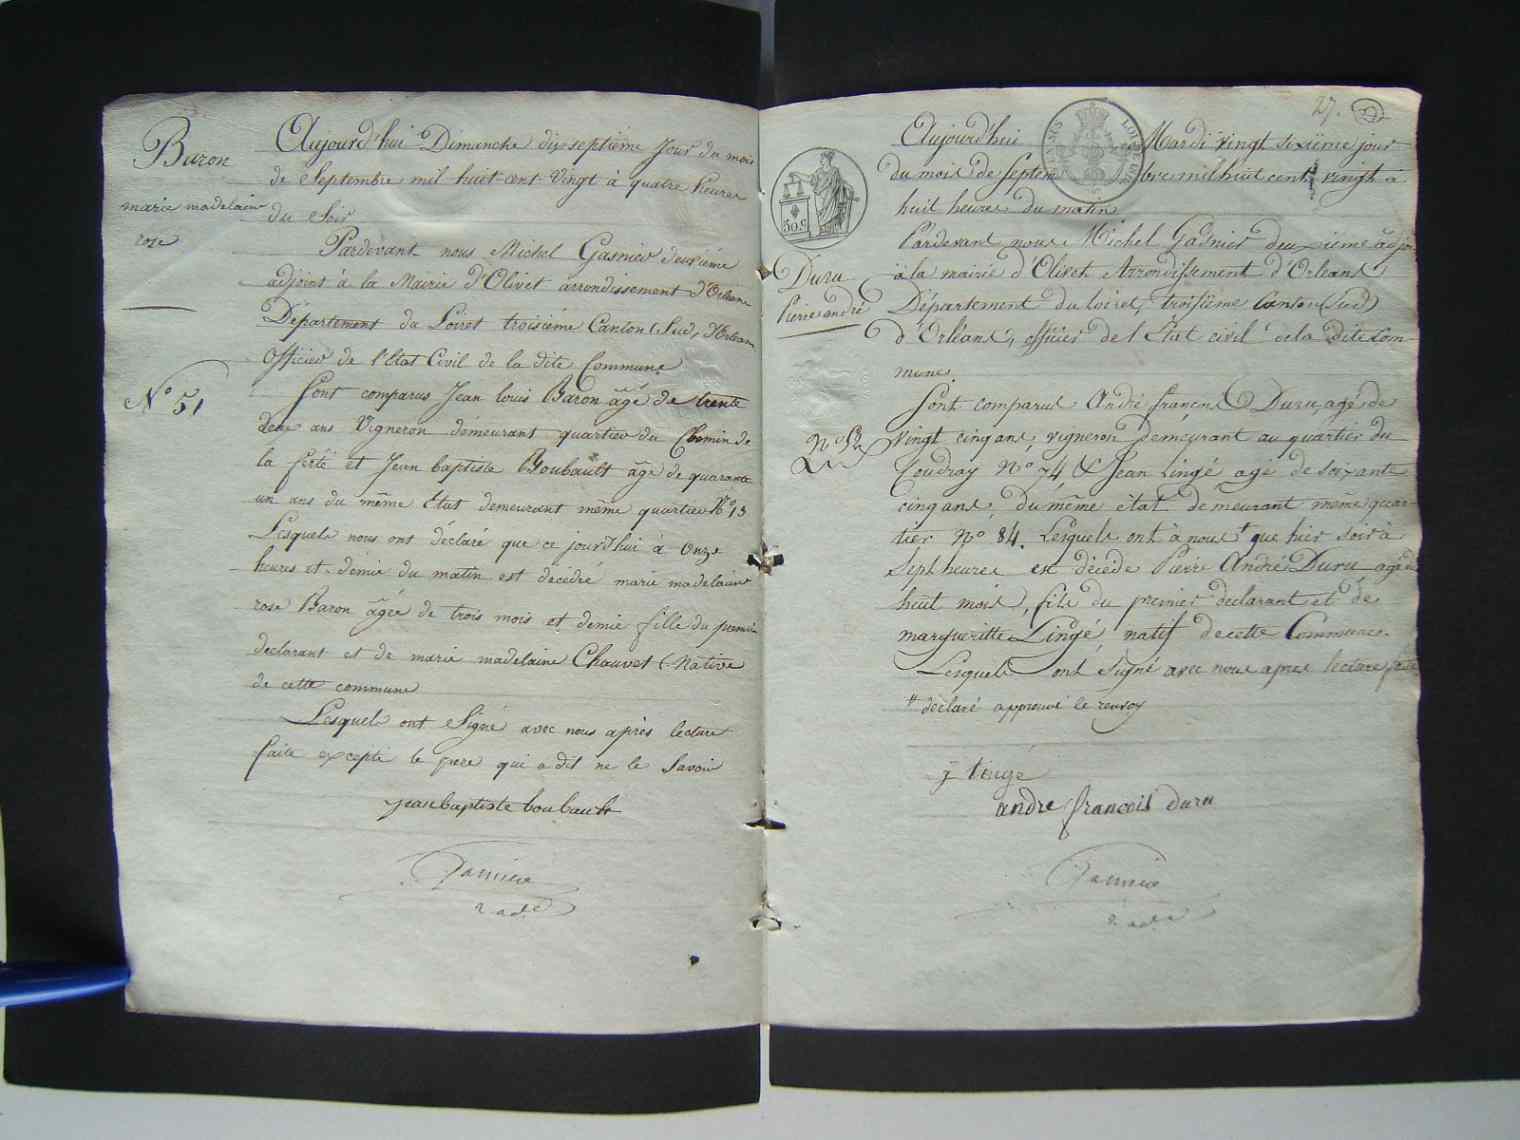 Baron
marie madelaine
rose
N° 51
Aujourd'hui Dimanche dix septième Jour du mois
de Septembre mil huit-cent Vingt à quatre heures
du Soir
Pardevant nous Michel Gasnier deuxième
adjoint à la Mairie d'Olivet arrondissement d'Orleans
Département du Loiret troisième Canton (Sud) d'Orleans
Officier de l'Etat Civil de la dite Commune
Sont comparus Jean louis Baron âgé de trente
deux ans Vigneron demeurant quartier du Chemin de
la ferté et Jean baptiste Boubault âgé de quarante
un ans du même Etat demeurant même quartier N° 13
Lesquels nous ont déclaré que ce jourd'hui à Onze
heures et demie du matin est décédée marie madelaine
rose Baron âgée de trois mois et demie fille du premier
declarant et de marie madelaine Chauvet (Native
de cette commune
Lesquels ont Signé avec nous après lecture
faite excepté le pere qui a dit ne le Savoir
jean baptiste boubault
Gasnier
2 adt
27.
50 c
LOIRET
Duru
Pierre andré
N° 52
Aujourd'hui Mardi vingt sixième jour
du mois de Septembre mil huit cent vingt à
huit heures du matin
Pardevant nous Michel Gasnier deuxieme adjoint
à la mairie d'Olivet Arrondissement d'Orleans
Département du loiret, troisième Canton (sud)
d'Orleans, officier de l'Etat civil de la dite Com-
mune.
Sont comparus André françois Duru, agé de
vingt cinq ans, vigneron demeurant au quartier du
Coudray N° 74 & Jean Lingé agé de soixante
cinq ans, du même état demeurant même quar-
tier N° 84. Lesquels ont à nous # que hier soir à
Sept heures est décédé Pierre André Duru agé de
huit mois, fils du premier declarant et de
margueritte Lingé natif de cette Commune.
Lesquels ont signé avec nous apres lecture faite
# declaré approuvé le renvoy
j linge
andre francois duru
Gasnier
2 adt